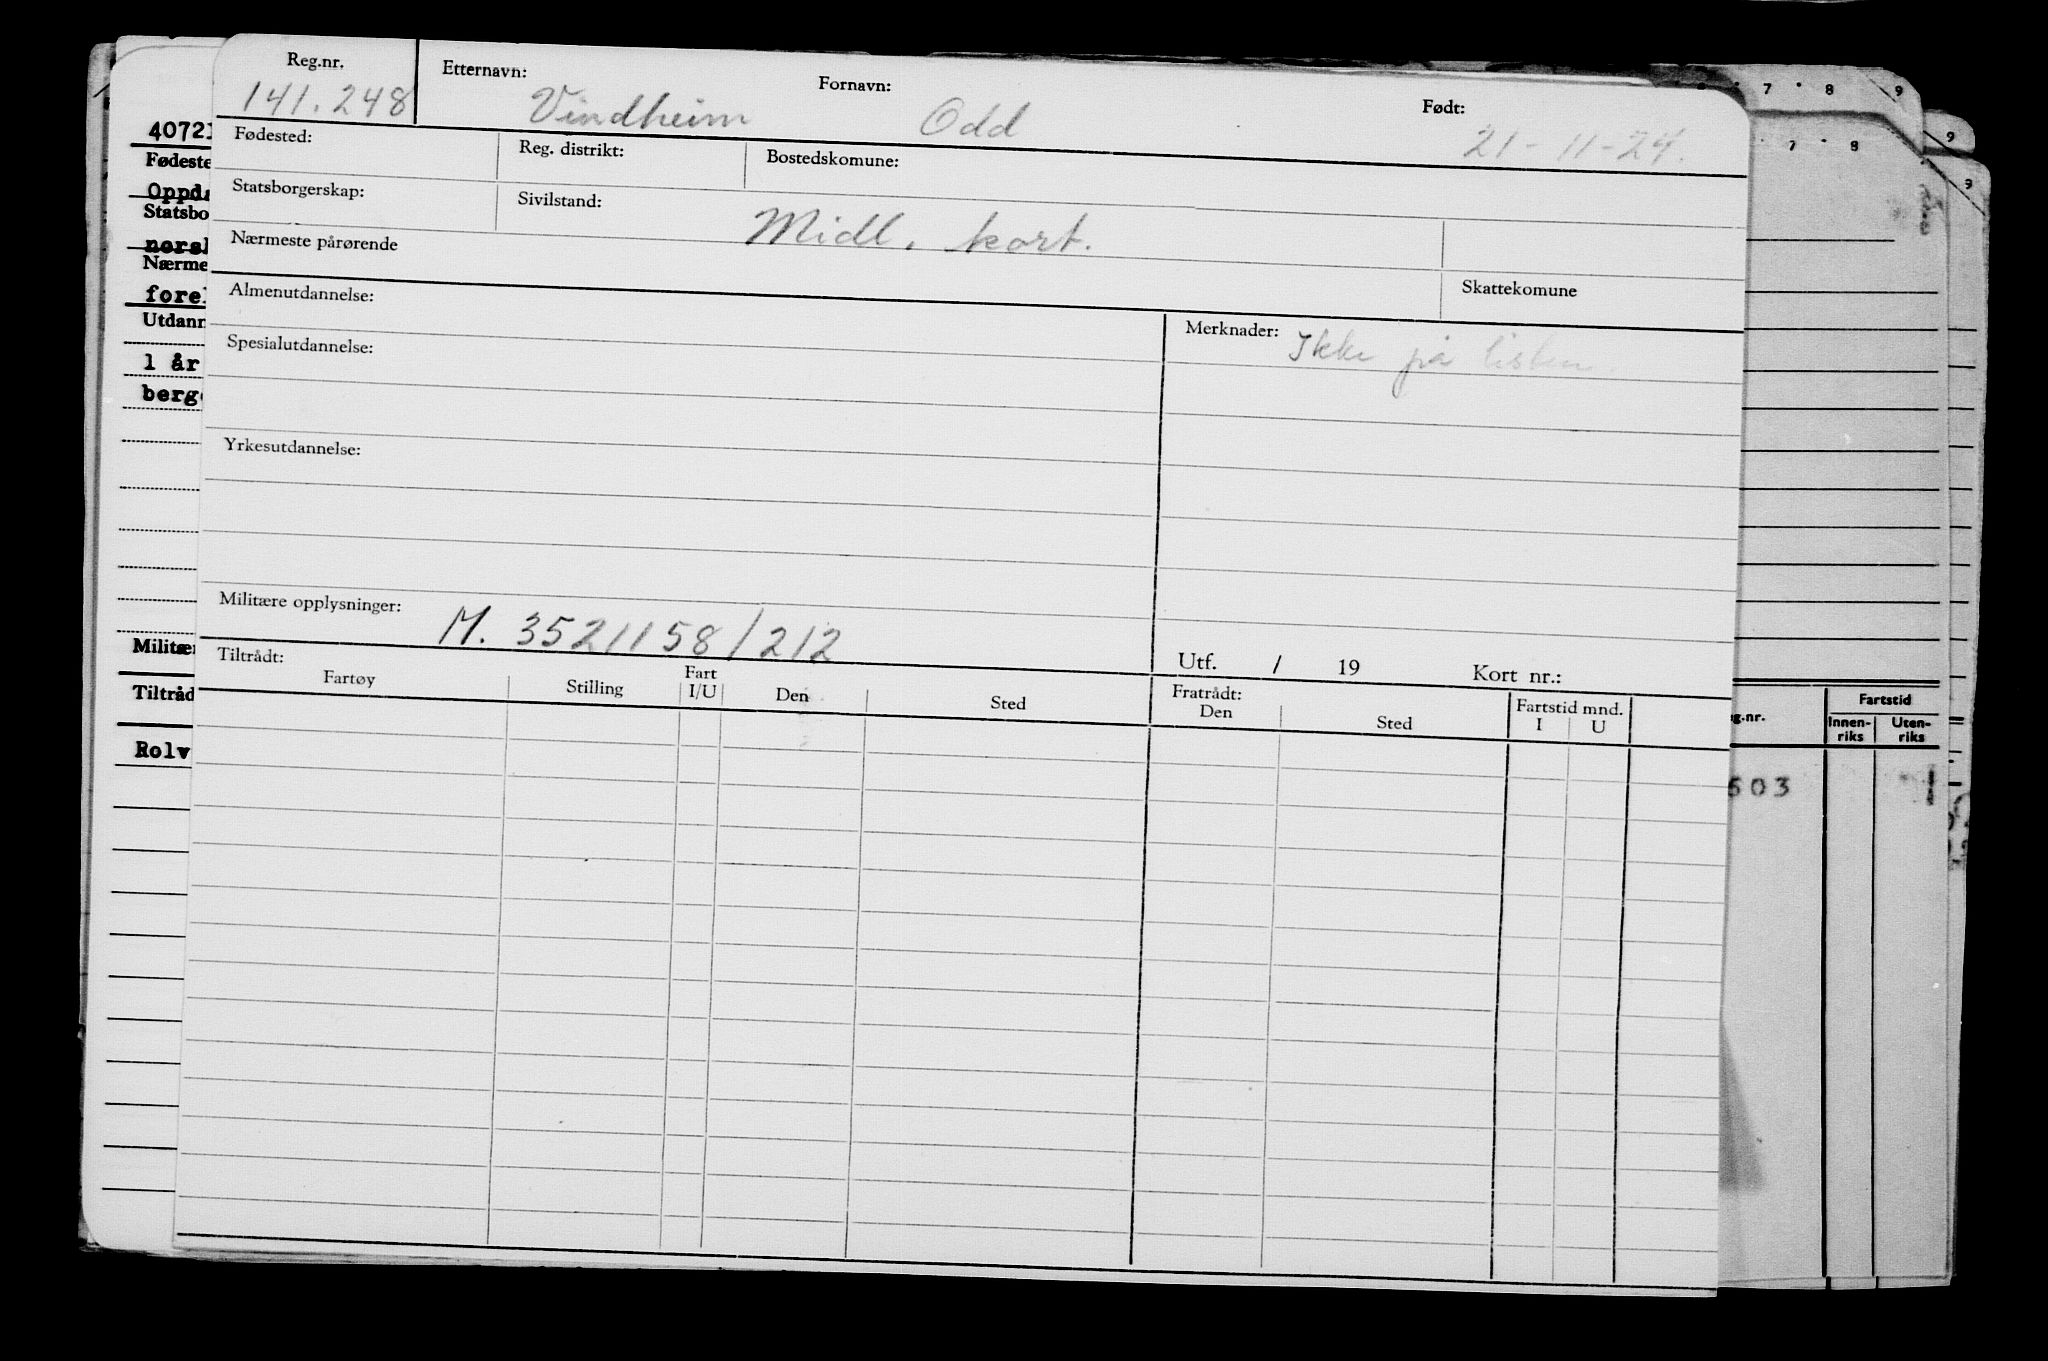 Reg.nr. Etternavn: Fornavn: Født:
141.248 Vindheim Odd 21-11-24.
Fødested: Reg. distrikt: Bostedskomune:
Statsborgerskap: Sivilstand: Midl. kort.
Nærmeste pårørende Skattekomune
Almenutdannelse: Merknader: Ikke på listen.
Spesialutdannelse:
Yrkesutdannelse:
Militære opplysninger: M. 3521158/212
Utf. / 19 Kort nr.:
Tiltrådt: Fratrådt:
Fartøy Stilling Fart I/U Den Sted Den Sted Fartstid mnd. I U
4072
Fødeste
Oppd
Statsbo
norsk
Nærme
forel
Utdann
1 år
berg
Militæ
Tiltråd
Rolv
7 8 9
9
7 8
9
g.nr. Fartstid
Innen-riks Uten-riks
603